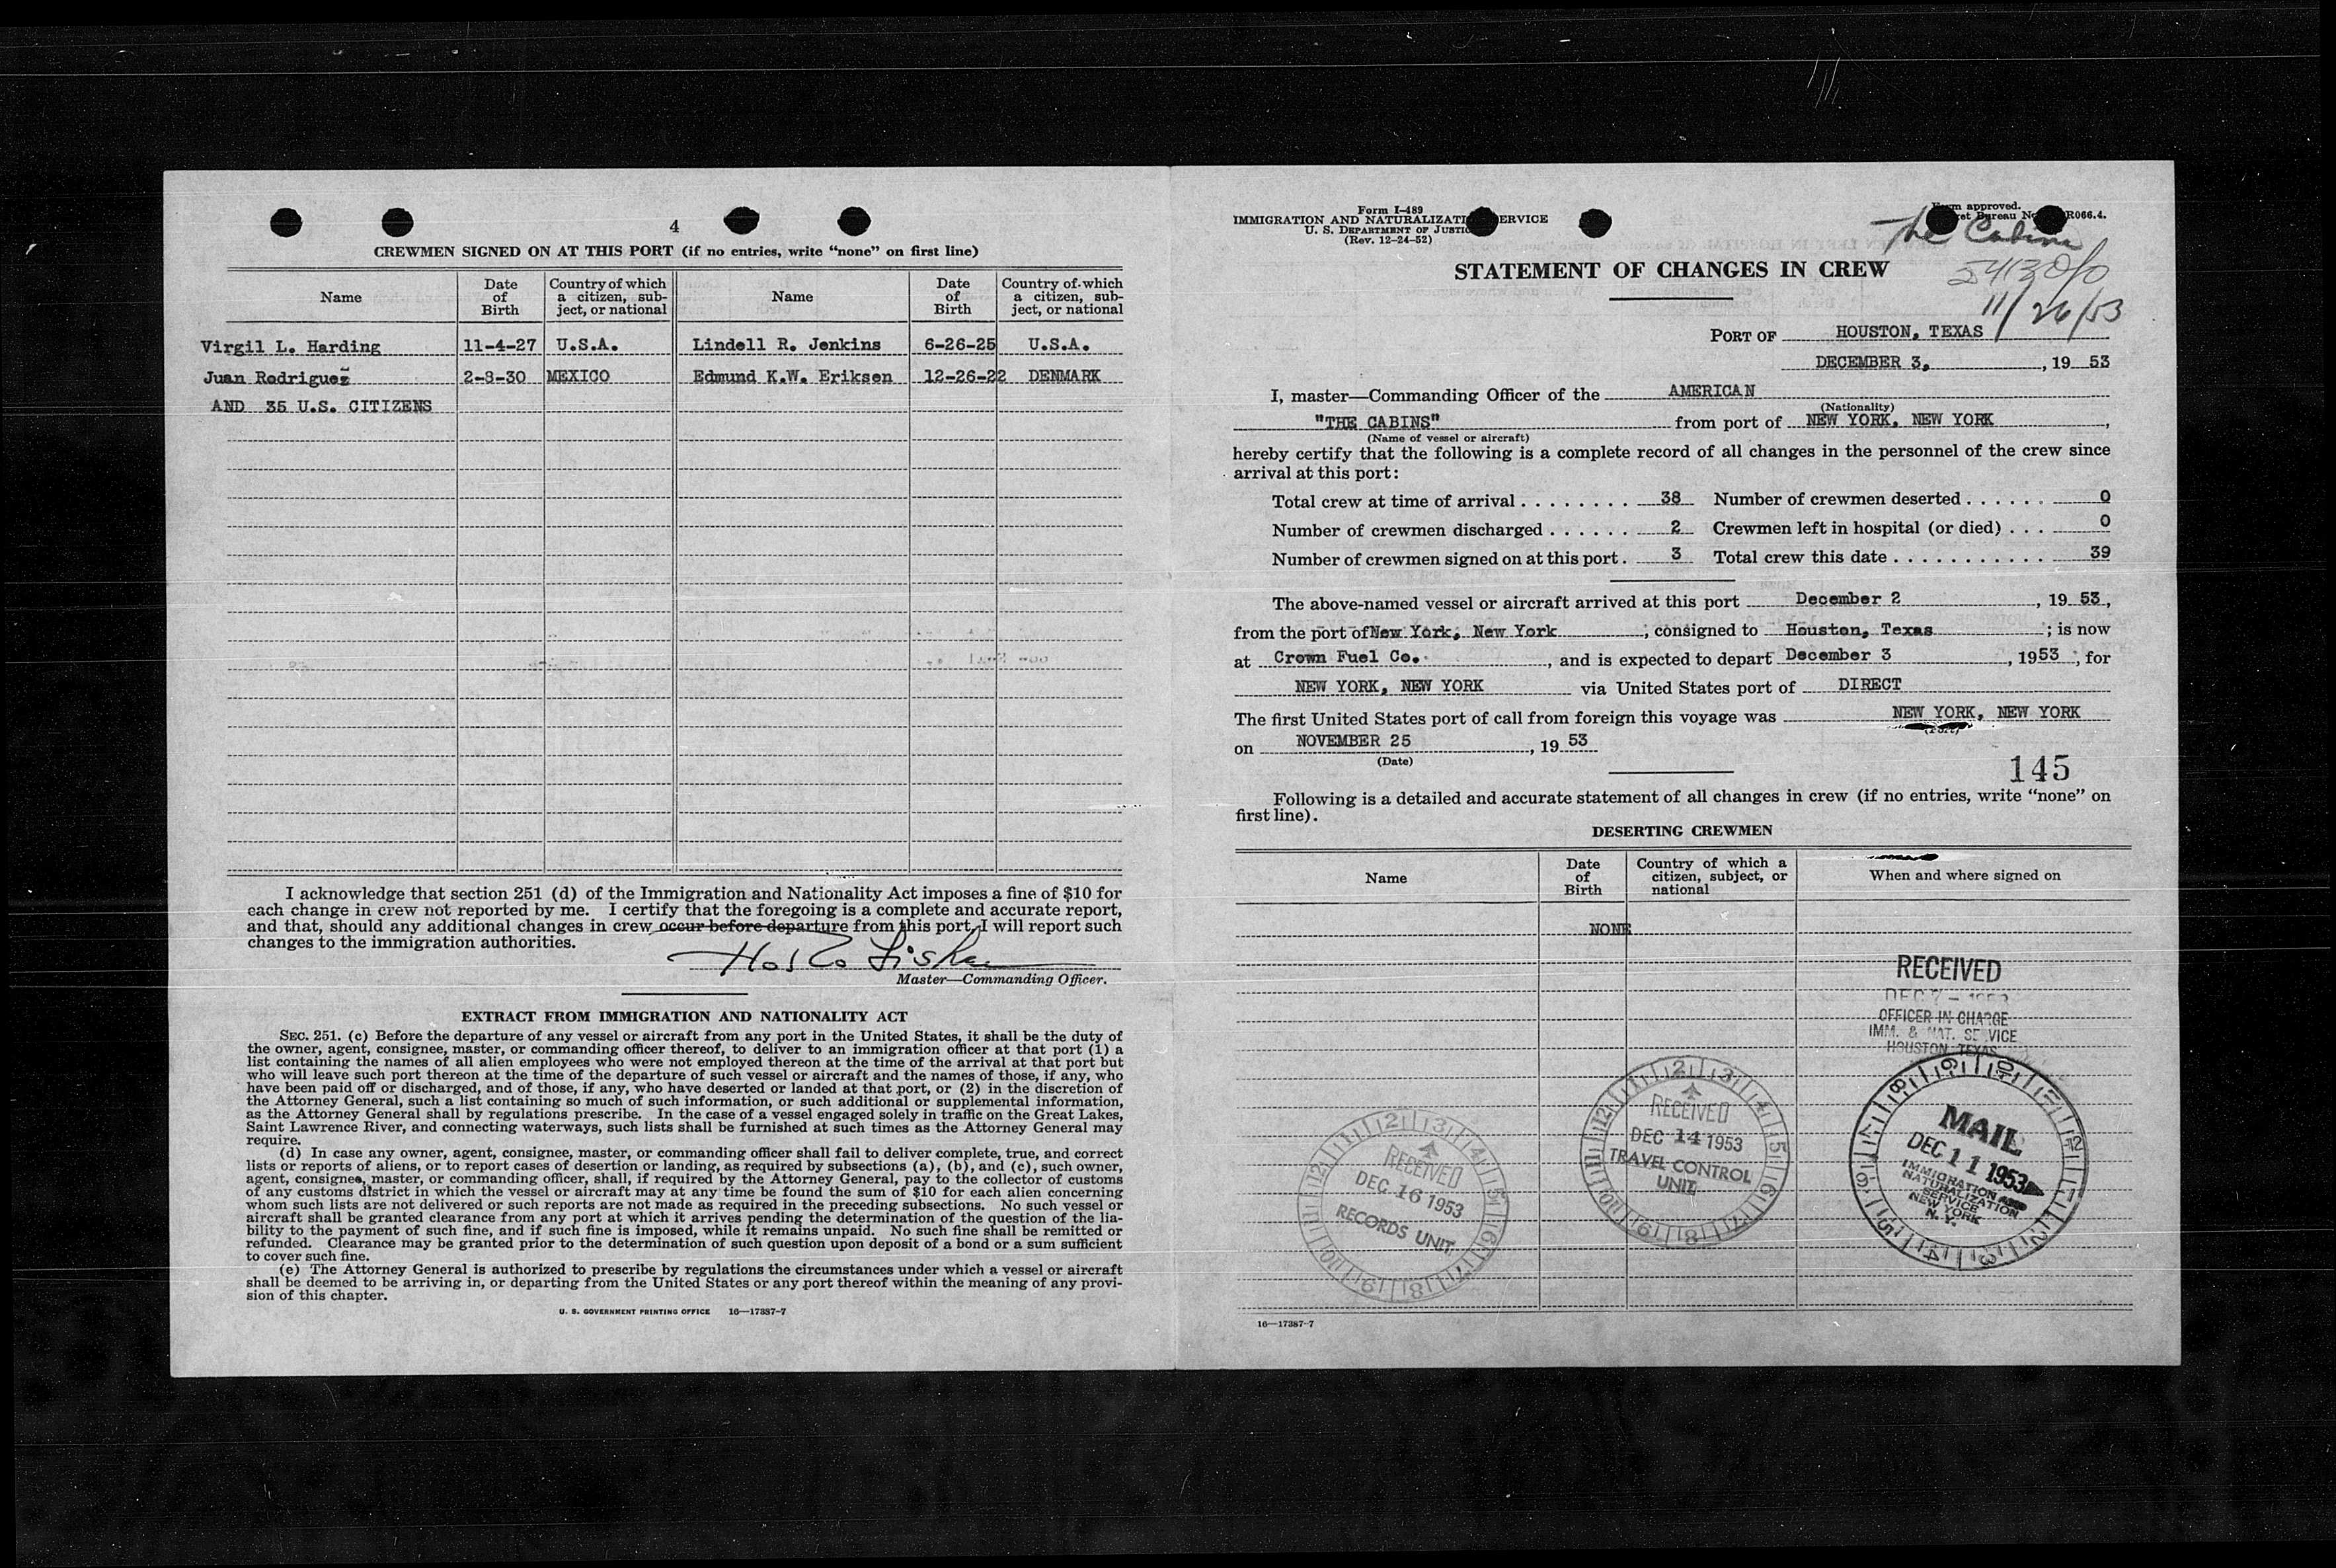 4
CREWMEN SIGNED ON AT THIS PORT (if no entries, write "none" on first line)
Name Date of Birth Country of which a citizen, subject, or national Name Date of Birth Country of which a citizen, subject, or national
Virgil L. Harding 11-4-27 U.S.A. Lindell R. Jenkins 6-26-25 U.S.A.
Juan Rodriguez 2-8-30 MEXICO Edmund K.W. Eriksen 12-26-22 DENMARK
AND 35 U.S. CITIZENS
I acknowledge that section 251 (d) of the Immigration and Nationality Act imposes a fine of $10 for
each change in crew not reported by me. I certify that the foregoing is a complete and accurate report,
and that, should any additional changes in crew occur before departure from this port, I will report such
changes to the immigration authorities.
Master—Commanding Officer.
EXTRACT FROM IMMIGRATION AND NATIONALITY ACT
SEC. 251. (c) Before the departure of any vessel or aircraft from any port in the United States, it shall be the duty of
the owner, agent, consignee, master, or commanding officer thereof, to deliver to an immigration officer at that port (1) a
list containing the names of all alien employees who were not employed thereon at the time of the arrival at that port but
who will leave such port thereon at the time of the departure of such vessel or aircraft and the names of those, if any, who
have been paid off or discharged, and of those, if any, who have deserted or landed at that port, or (2) in the discretion of
the Attorney General, such a list containing so much of such information, or such additional or supplemental information,
as the Attorney General shall by regulations prescribe. In the case of a vessel engaged solely in traffic on the Great Lakes,
Saint Lawrence River, and connecting waterways, such lists shall be furnished at such times as the Attorney General may
require.
(d) In case any owner, agent, consignee, master, or commanding officer shall fail to deliver complete, true, and correct
lists or reports of aliens, or to report cases of desertion or landing, as required by subsections (a), (b), and (c), such owner,
agent, consignee, master, or commanding officer, shall, if required by the Attorney General, pay to the collector of customs
of any customs district in which the vessel or aircraft may at any time be found the sum of $10 for each alien concerning
whom such lists are not delivered or such reports are not made as required in the preceding subsections. No such vessel or
aircraft shall be granted clearance from any port at which it arrives pending the determination of the question of the lia-
bility to the payment of such fine, and if such fine is imposed, while it remains unpaid. No such fine shall be remitted or
refunded. Clearance may be granted prior to the determination of such question upon deposit of a bond or a sum sufficient
to cover such fine.
(e) The Attorney General is authorized to prescribe by regulations the circumstances under which a vessel or aircraft
shall be deemed to be arriving in, or departing from the United States or any port thereof within the meaning of any provi-
sion of this chapter.
U. S. GOVERNMENT PRINTING OFFICE 16—17387-7
Form I-489
IMMIGRATION AND NATURALIZATION SERVICE
U. S. DEPARTMENT OF JUSTICE
(Rev. 12-24-52)
Form approved.
Bureau No. R066.4.
The Cabins
11/26/53
STATEMENT OF CHANGES IN CREW
PORT OF HOUSTON, TEXAS
DECEMBER 3, 19 53
I, master—Commanding Officer of the AMERICAN
(Nationality)
"THE CABINS" from port of NEW YORK, NEW YORK,
(Name of vessel or aircraft)
hereby certify that the following is a complete record of all changes in the personnel of the crew since
arrival at this port:
Total crew at time of arrival . . . . . . . . 38 Number of crewmen deserted . . . . . . 0
Number of crewmen discharged . . . . . . 2 Crewmen left in hospital (or died) . . . 0
Number of crewmen signed on at this port . 3 Total crew this date . . . . . . . . . . . 39
The above-named vessel or aircraft arrived at this port December 2, 19 53,
from the port of New York, New York, consigned to Houston, Texas; is now
at Crown Fuel Co., and is expected to depart December 3, 1953, for
NEW YORK, NEW YORK via United States port of DIRECT
The first United States port of call from foreign this voyage was NEW YORK, NEW YORK
(Port)
on NOVEMBER 25, 19 53
(Date)
145
Following is a detailed and accurate statement of all changes in crew (if no entries, write "none" on
first line).
DESERTING CREWMEN
Name Date of Birth Country of which a citizen, subject, or national When and where signed on
NONE
RECEIVED
DEC 7 - 1953
OFFICER IN CHARGE
IMM. & NAT. SERVICE
HOUSTON TEXAS
RECEIVED
DEC 16 1953
RECORDS UNIT
RECEIVED
DEC 14 1953
TRAVEL CONTROL
UNIT
MAIL
DEC 11 1953
IMMIGRATION AND
NATURALIZATION
SERVICE
NEW YORK
N. Y.
16—17387-7